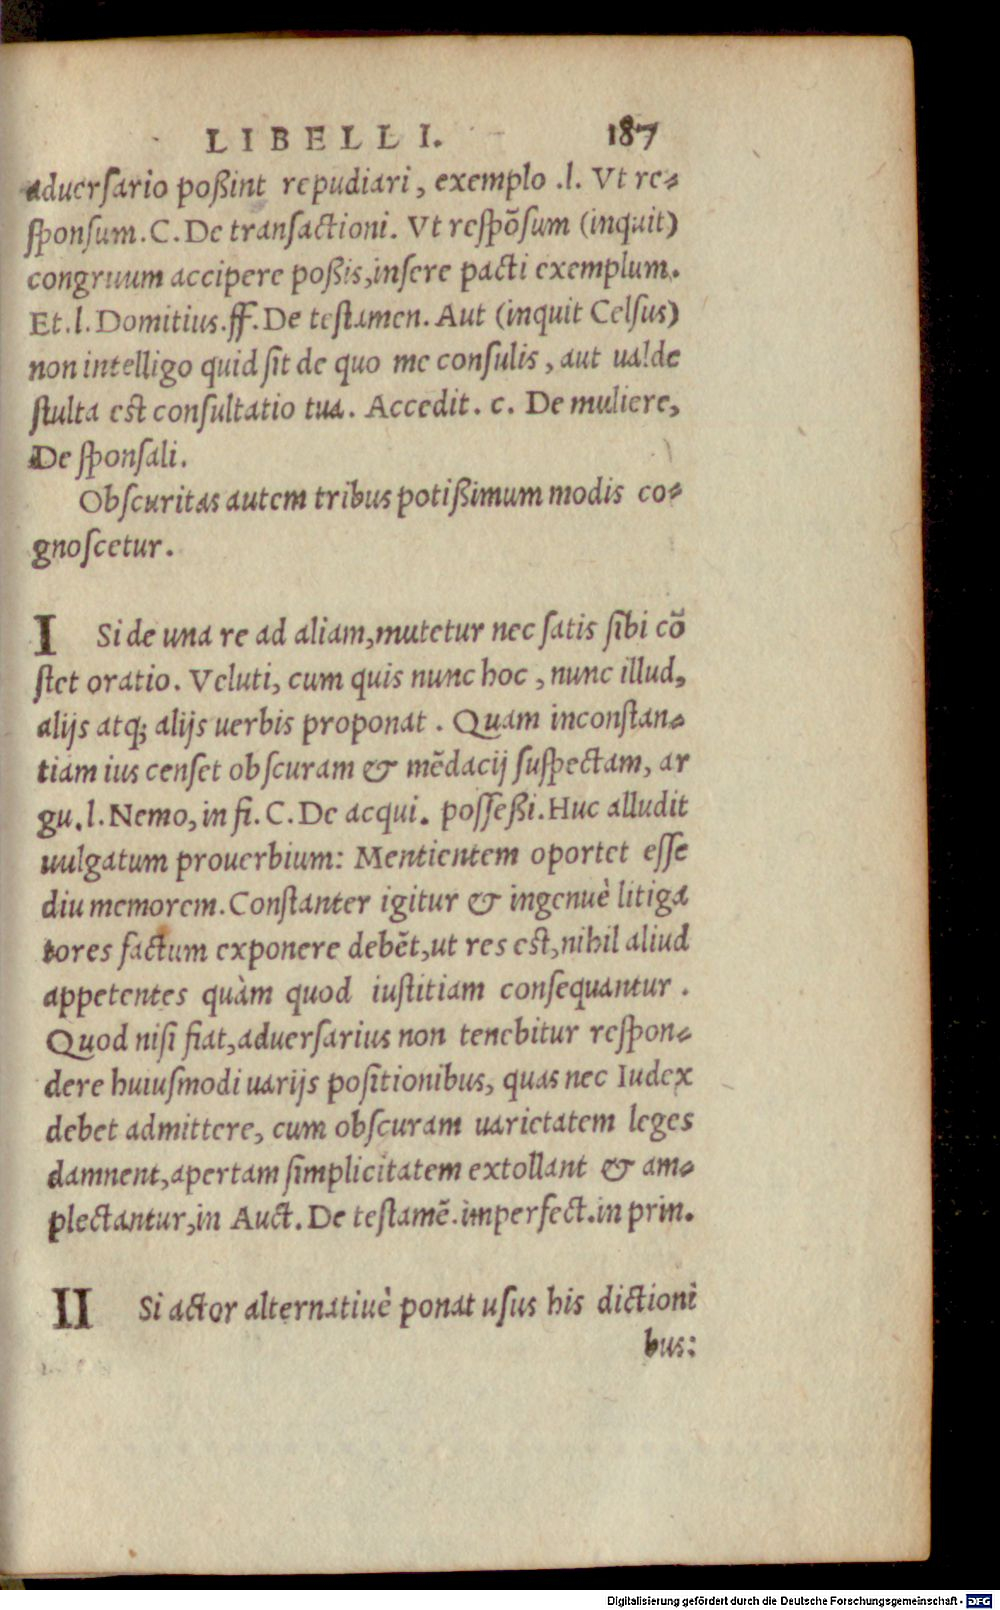 LIBELLI I. 187
aduersario poßint repudiari, exemplo .l. Vt re-
sponsum. C. De transactioni. Vt respõsum (inquit)
congruum accipere poßis, insere pacti exemplum.
Et. l. Domitius. ff. De testamen. Aut (inquit Celsus)
non intelligo quid sit de quo me consulis, aut ualde
stulta est consultatio tua. Accedit. c. De muliere,
De sponsali.
Obscuritas autem tribus potißimum modis co-
gnoscetur.
I Si de una re ad aliam, mutetur nec satis sibi cõ
stet oratio. Veluti, cum quis nunc hoc, nunc illud,
alijs atq; alijs uerbis proponat. Quam inconstan-
tiam ius censet obscuram & mẽdacij suspectam, ar
gu. l. Nemo, in fi. C. De acqui. posseßi. Huc alludit
uulgatum prouerbium: Mentientem oportet esse
diu memorem. Constanter igitur & ingenuè litiga
tores factum exponere debẽt, ut res est, nihil aliud
appetentes quàm quod iustitiam consequantur.
Quod nisi fiat, aduersarius non tenebitur respon-
dere huiusmodi uarijs positionibus, quas nec Iudex
debet admittere, cum obscuram uarietatem leges
damnent, apertam simplicitatem extollant & am-
plectantur, in Auct. De testamẽ. imperfect. in prin.
II Si actor alternatiuè ponat usus his dictioni
bus:
Digitalisierung gefördert durch die Deutsche Forschungsgemeinschaft - DFG